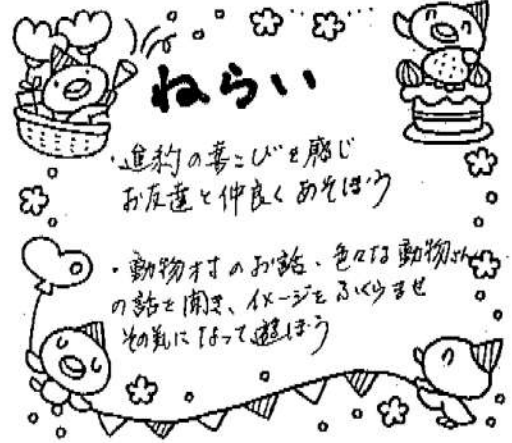 ねらい
・進級の喜こびを感じ
お友達と仲良くあそぼう
・動物村のお話、色々な動物さん
の話を聞き、イメージをふくらませ
その気になって遊ぼう